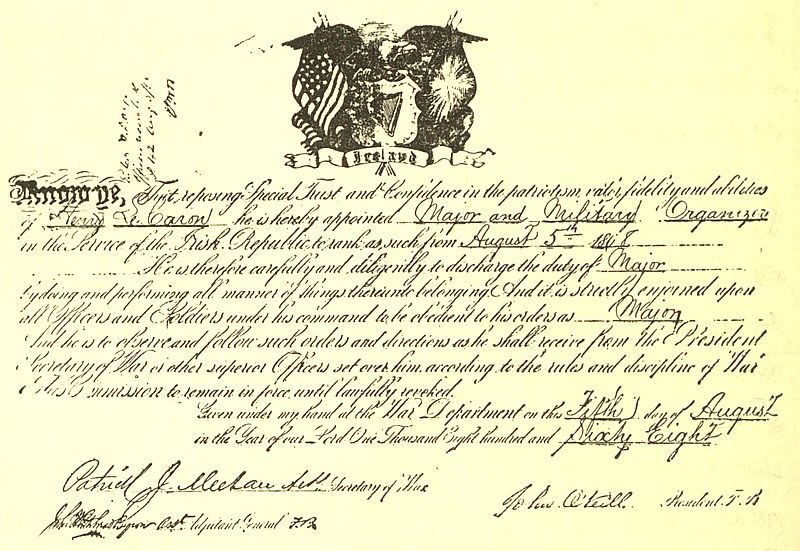 Ireland
Know ye, That, reposing Special Trust and Confidence in the patriotism, valor, fidelity and abilities
of Henry Le Caron he is hereby appointed Major and Military Organizer
in the Service of the Irish Republic to rank as such from August 5th 1868
He is therefore carefully and diligently to discharge the duty of Major
by doing and performing all manner of things thereunto belonging. And it is strictly enjoined upon
all Officers and Soldiers under his command to be obedient to his orders as Major
And he is to observe and follow such orders and directions as he shall receive from the President
Secretary of War or other superior Officers set over him, according to the rules and discipline of War
This Commission to remain in force until lawfully revoked.
Given under my hand at the War Department on this Fifth day of August
in the Year of our Lord One Thousand Eight hundred and Sixty Eight
Patrick J. Meehan Secretary of War
John O'Neill. President. F. B
Adjutant General F.B